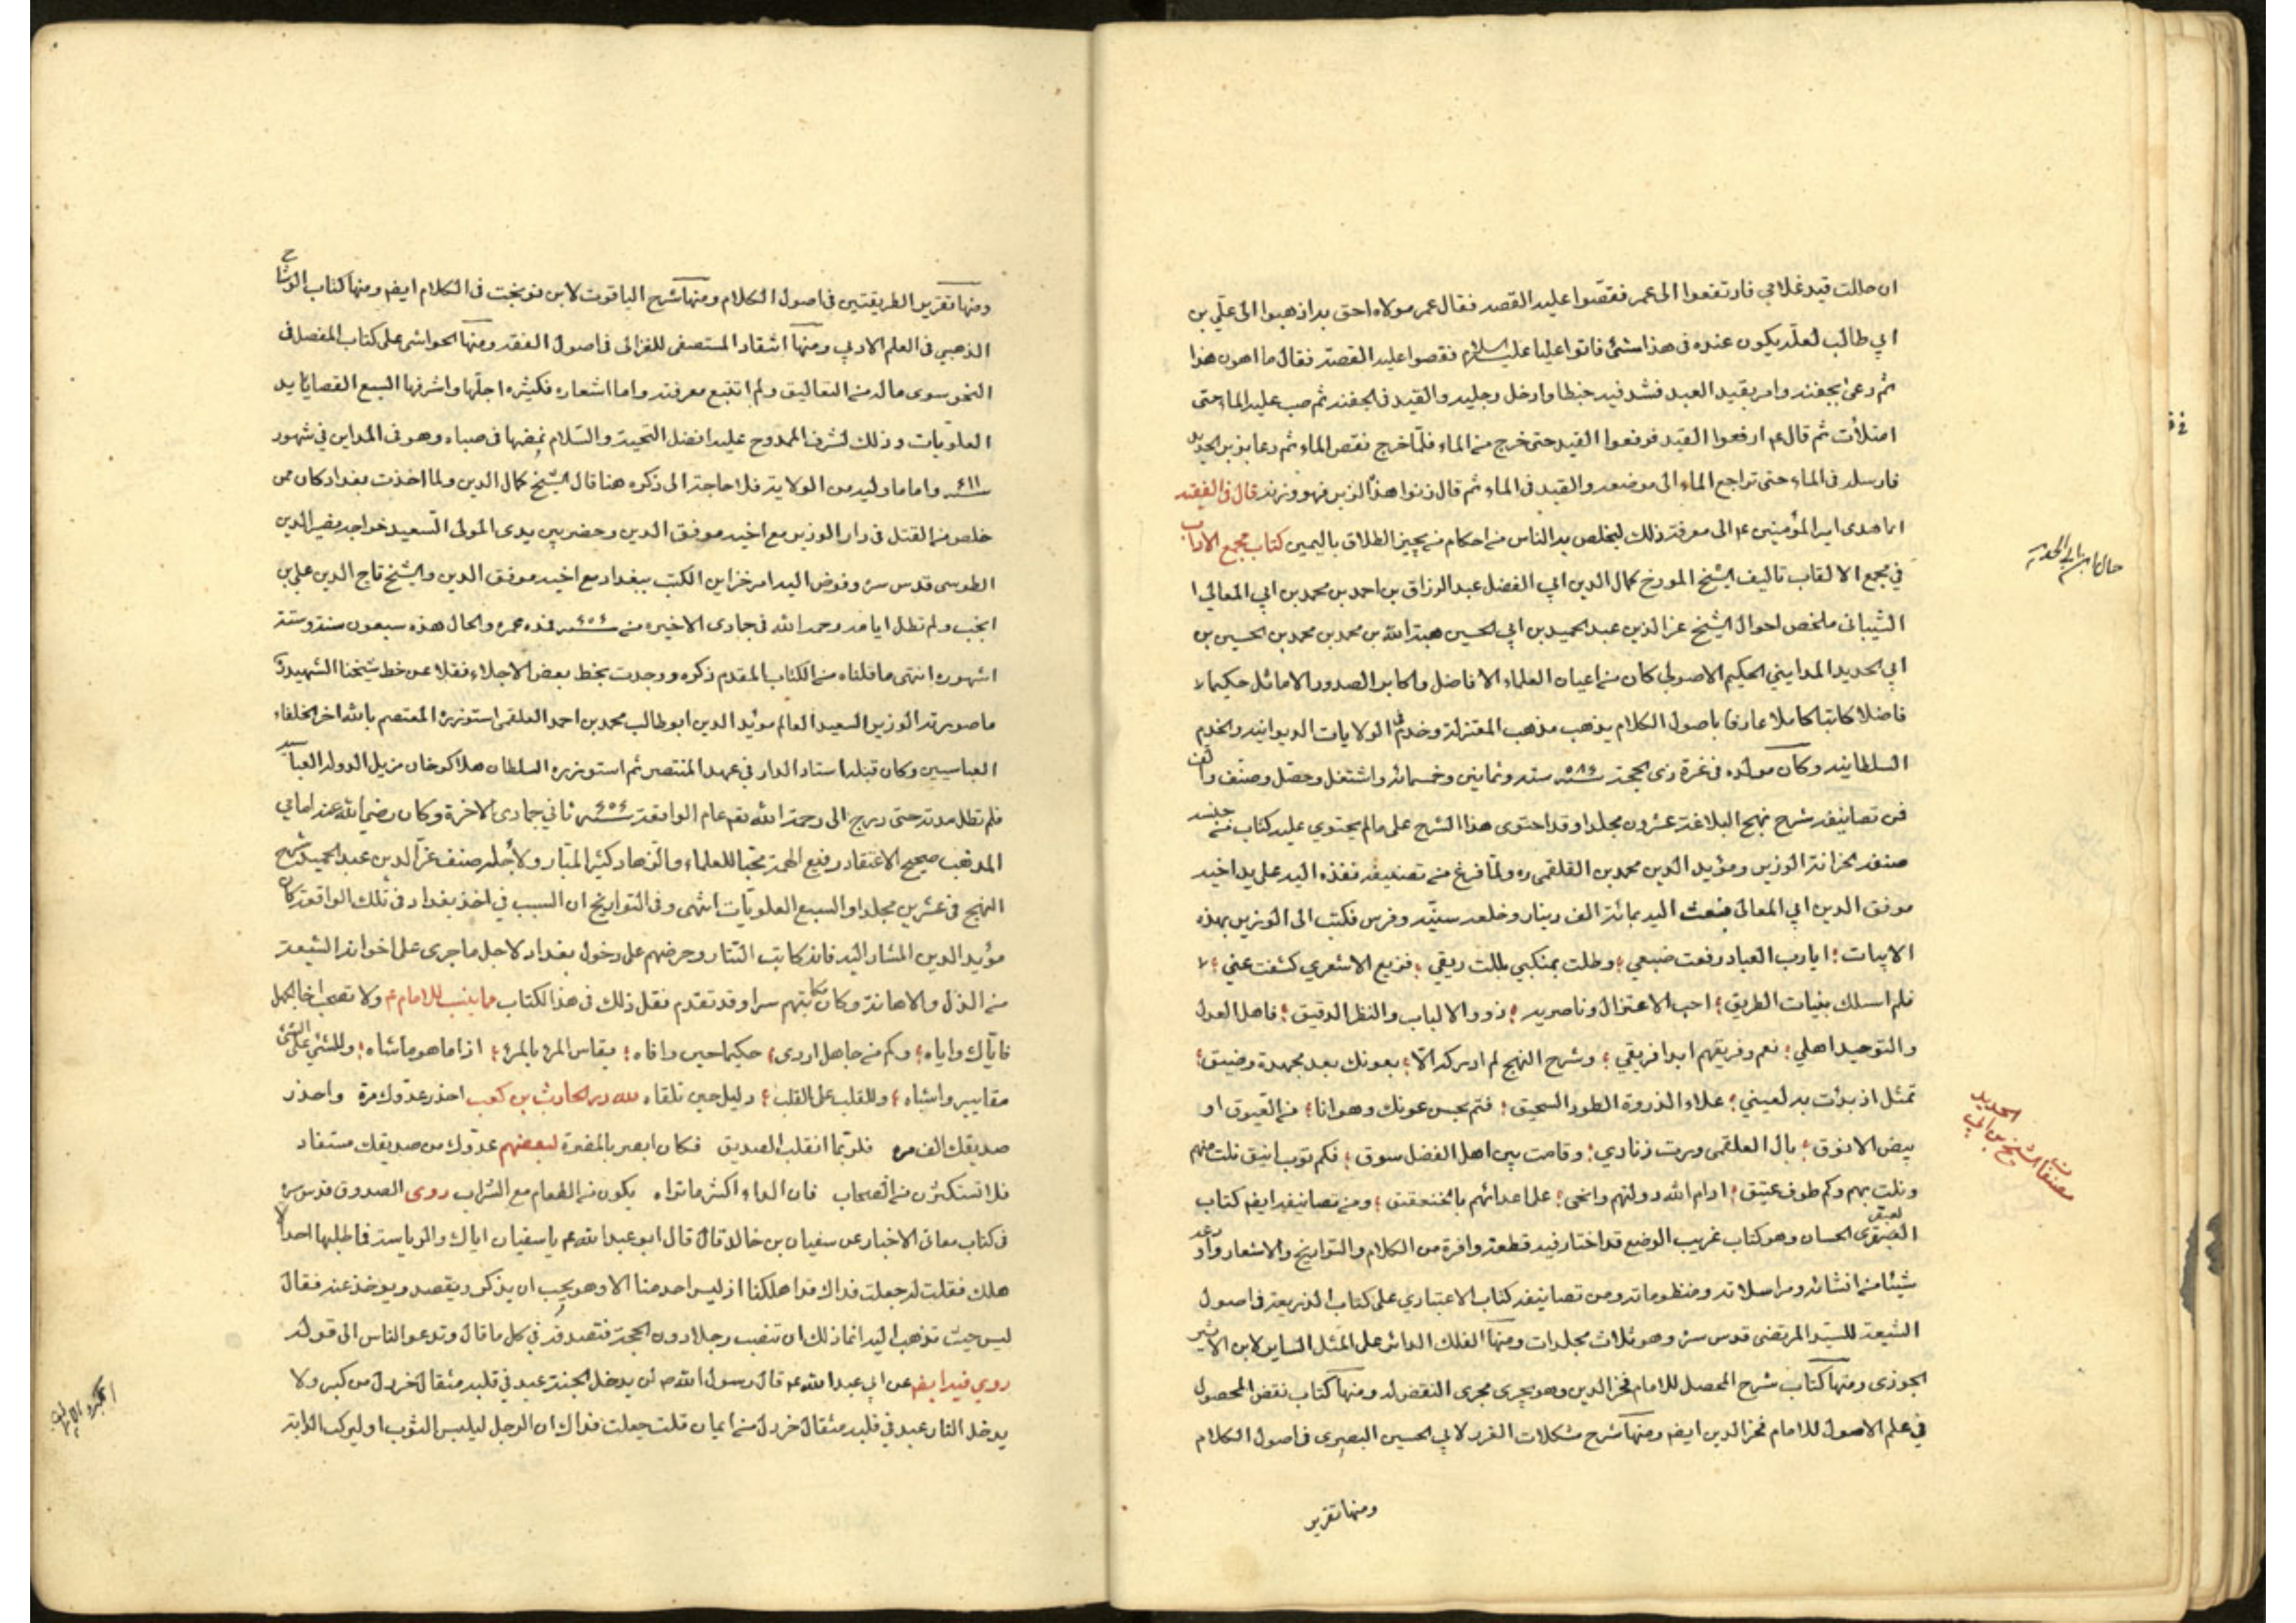 ان حللت قيد غلامي فارتفعوا الى عمر فقصّوا عليه القصه فقال عمر مولاه احق به اذهبوا الى علّي بن
ابي طالب لعلّه يكون عنده في هذا شئ فاتوا عليا عليه السلام فقصوا عليه القصة فقال ما اهون هذا
ثم دعى بجفنه وامر بقيد العبد فشد فيه خيطا وادخل رجليه والقيد في الجفنه ثم صب عليه الماء حتى
امتلأت ثم قال ع ارفعوا القيد فرفعوا القيد حتى خرج من الماء فلمّا خرج نقص الماء ثم دعا بزبر الحديد
فارسله في الماء حتى تراجع الماء الى موضعه والقيد في الماء ثم قال زنوا هذا الزبر فهو وزنه قال في الفقيه
انما هدى امير المؤمنين ع الى معرفة ذلك ليخلص به الناس من احكام من يجيز الطلاق باليمين كتاب مجمع الاداب
في مجمع الالقاب تاليف الشيخ المورخ كمال الدين ابي الفضل عبد الرزاق بن احمد بن محمد بن ابي المعالي
الشيباني ملخص احوال الشيخ عز الدين عبد الحميد بن ابي الحسين هبة الله بن محمد بن محمد بن الحسين بن
ابي الحديد المدايني الحكيم الاصولي كان من اعيان العلماء الافاضل واكابر الصدور والاماثل حكيما
فاضلا كاتبا كاملا عارفا باصول الكلام يذهب مذهب المعتزلة وخدم في الولايات الديوانيه والخدم
السلطانيه وكان مولده في غرة ذي الحجة سنة ٥٨٦ ستة وثمانين وخمسمائه واشتغل وحصّل وصنّف والّف
فمن تصانيفه شرح نهج البلاغة عشرون مجلدا وقد احتوى هذا الشرح على ما لم يحتوي عليه كتاب من جنسه
صنفه لخزانة الوزير مؤيد الدين محمد بن العلقمي ره ولمّا فرغ من تصنيفه نفذه اليه على يد اخيه
موفق الدين ابي المعالى فبعث اليه بمائة الف دينار وخلعه سنيّه وفرس فكتب الى الوزير بهذه
الابيات ؛ ايا رب العباد رفعت ضبعي ؛ وطلت بمنكبي وبللت ريقي ؛ فزيغ الاشعري كشفت عني ؛
فلم اسلك بنيات الطريق ؛ احب الاعتزال وناصريه ؛ ذوو الالباب والنظر الدقيق ؛ فاهل العدل
والتوحيد اهلي ؛ نعم وفريقهم ابدا فريقي ؛ وشرح النهج لم ادركه الّا ؛ بعونك بعد مجهدة وضيق ؛
تمثل اذ بدأت به لعيني ؛ علاء الذروة الطود السحيق ؛ فتم بحسن عونك وهو انا ؛ من العيوق او
بيض الانوق ؛ بال العلقمي ورت زنادي ؛ وقامت بين اهل الفضل سوق ؛ فكم ثوب انيق نلت منهم
ونلت بهم وكم طوف عتيق ؛ ادام الله دولتهم وانحى ؛ على اعدائهم بالخنفقيق ؛ ومن تصانيفه ايضا كتاب
العبقري الحسان وهو كتاب غريب الوضع قد اختار فيه قطعة وافرة من الكلام والتواريخ والاشعار واودعه
شيئا من انشائه ومراسلاته ومنظوماته ومن تصانيفه كتاب الاعتباري على كتاب الذريعة في اصول
الشيعة للسيّد المرتضى قدس سره وهو ثلاث مجلدات ومنها الفلك الدائر على المثل الساير لابن الاثير
الجوزى ومنها كتاب شرح المحصل للامام فخر الدين وهو يجرى مجرى النقض له ومنها كتاب نقض المحصول
في علم الاصول للامام فخر الدين ايضا ومنها شرح مشكلات الغرر لابي الحسين البصرى في اصول الكلام
ومنها تقرير
حال ابن ابي الحديد
مصنفات الشيخ بن ابي الحديد
ومنها تقرير الطريقتين في اصول الكلام ومنها شرح الياقوت لابن نوبخت في الكلام ايضا ومنها كتاب الوشاح
الذهبي في العلم الادبي ومنها انتقاد المستصفى للغزالى في اصول الفقه ومنها الحواشي على كتاب المفصل في
النحو سوى ماله من التعاليق ولم اتتبع معرفته واما اشعاره فكثيره اجلّها واشرفها السبع القصايد
العلويّات وذلك لشرف الممدوح عليه افضل التحية والسّلام نظمها في صباه وهو في المداين في شهور
سنة ٦١١ واما ما وليه من الولاية فلا حاجة الى ذكره هنا قال الشيخ كمال الدين ولما اخذت بغداد كان ممن
خلص من القتل في دار الوزير مع اخيه موفق الدين وحضر بين يدى المولى السّعيد خواجه نصير الدين
الطوسى قدس سره وفوض اليه امر خزاين الكتب ببغداد مع اخيه موفق الدين والشيخ تاج الدين علي بن
انجب ولم تطل ايامه رحمه الله في جمادى الاخيره من سنة ٦٥٦ فمدة عمره والحال هذه سبعون سنة وستة
اشهر انتهى ما نقلناه من الكتاب المقدم ذكره ووجدت بخط بعض الاجلاء نقلا عن خط شيخنا الشهيد
ما صورته الوزير السعيد العالم مؤيد الدين ابو طالب محمد بن احمد العلقمى استوزره المعتصم بالله اخر الخلفاء
العباسيين وكان قبله استاد الدار في عهد المنتصر ثم استوزره السلطان هلاكوخان مزيل الدولة العباسية
فلم تطل مدته حتى درج الى رحمة الله تعم عام الواقعة سنة ٦٥٦ ثاني جمادى الاخرة وكان رضي الله عنه امامي
المذهب صحيح الاعتقاد رفيع الهمة محبا للعلماء والزهاد كثير المبّار ولاجله صنف عزّ الدين عبد الحميد شرح
النهج في عشرين مجلدا والسبع العلويّات انتهى وفي التواريخ ان السبب في اخذ بغداد في تلك الواقعة كان
مؤيد الدين المشار اليه فانه كاتب التتار وحرضهم على دخول بغداد لاجل ما جرى على اخوانه الشيعة
من الذلّ والاهانة وكان مكاتبتهم سرا وقد تقدم نقل ذلك في هذا الكتاب مما ينسب للامام ع ولا تصحب اخا الجهل
فايّاك واياه ؛ وكم من جاهل اردى ؛ حكيما حين واخاه ؛ يقاس المرء بالمرء ؛ اذا ما هو ماشاه ؛ وللشئ على الشئ
مقاييس واشباه ؛ وللقلب على القلب ؛ دليل حين تلقاه لله در الحارث بن كعب احذر عدوّك مرة واحذر
صديقك الف مره فلربّما انقلب الصديق فكان ابصر بالمضرة لبعضهم عدوّك من صديقك مستفاد
فلا تستكثرن من الصحاب فان الداء اكثر ما تراه يكون من الطعام مع الشراب روى الصدوق قدس سره
في كتاب معانى الاخبار عن سفيان بن خالد قال قال ابو عبد الله ع يا سفيان اياك والرياسة فما طلبها احد الا
هلك فقلت له جعلت فداك قد اهلكنا اذ ليس احد منا الا وهو يحب ان يذكر ويقصد ويوخذ عنه فقال
ليس حيث تذهب اليه انما ذلك ان تنصب رجلا دون الحجة فتصدقه في كل ما قال وتدعو الناس الى قوله
روي فيه ايضا عن ابي عبد الله ع قال رسول الله ص لن يدخل الجنة عبد في قلبه مثقال خردل من كبر ولا
يدخل النار عبد في قلبه مثقال خردل من ايمان قلت جعلت فداك ان الرجل ليلبس الثوب او ليركب الدابة